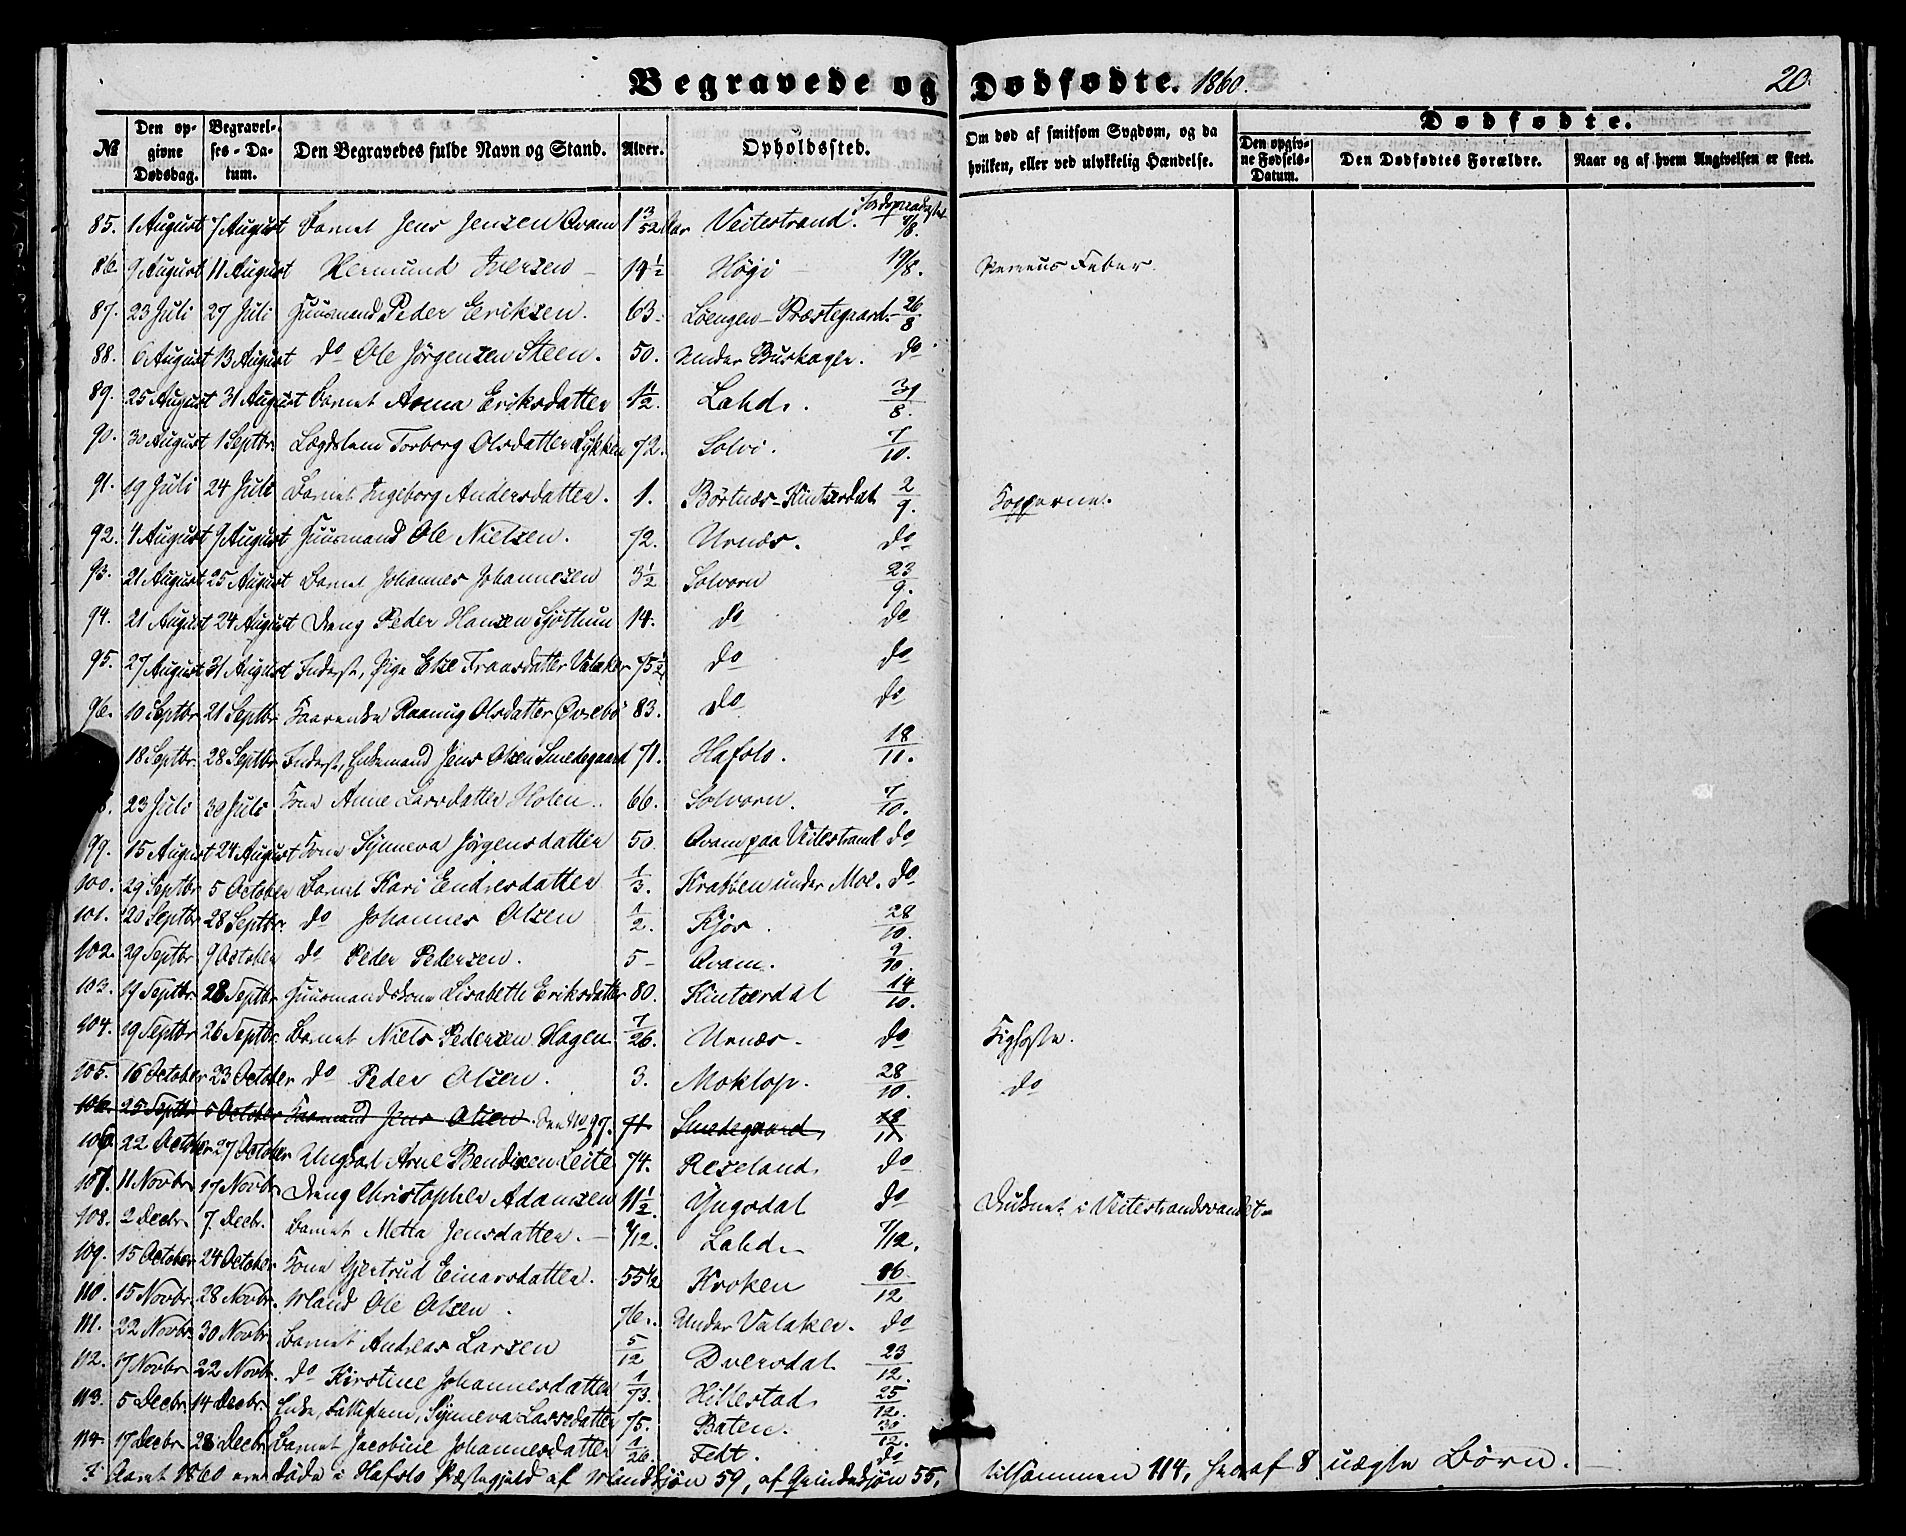 Begravede og Dødfødte. 1860. 20.
No
Den opgivne Dødsdag.
Begravelses-Datum.
Den Begravedes fulde Navn og Stand.
Alder.
Opholdssted.
Om død af smitsom Sygdom, og da hvilken, eller ved ulykkelig Hændelse.
Dødfødte.
Den opgivne Fødsels-Datum.
Den Dødfødtes Forældre.
Naar og af hvem Angivelsen er skeet.
85. 1 August 7 August Barnet Jens Jensen Qvam 1 3/52 Aar Veitestrand. 7/8.
86. 9 August 11 August Hermund Iversen 14 1/2 Høgi 19/8. Nerveus Feber.
87. 23 Juli 27 Juli Huusmand Peder Eriksen. 63. Løengen - Præstegaard. 26/8
88. 6 August 13 August do Ole Jørgensen Steen. 50. Under do
89. 25 August 31 August Barnet Anna Eriksdatter 1 1/2. Lahd. 31/8.
90. 30 August 1 Septbr. Lægdslem Torborg Olsdatter Lykken 72. Solvi. 7/10.
91. 19 Juli 24 Juli Barnet Ingeborg Andersdatter. 1. Børtnæs - Kintserdal 2/9. Kopperne.
92. 4 August 9 August Huusmand Ole Nielsen. 72. Urnæs. do
93. 21 August 25 August Barnet Johannes Johannesen 3 1/2 Solvorn 23/9.
94. 21 August 24 August Dreng Peder Hansen Sjøthun 14. do do
95. 27 August 31 August Inderst, Pige Else Fransdatter Valaker 75 1/2 do do
96. 10 Septbr. 21 Septbr. Kaarenke Raanug Olsdatter Øvrebø 83. do do
18 Septbr. 28 Septbr. Inderst, Enkemand Jens Olsen Smedegaard 71. Hafslo. 18/11.
8. 23 Juli 30 Juli Kone Anne Larsdatter Holen. 66. Solvorn. 7/10.
99. 15 August 24 August Kone Synneva Jørgensdatter 50. Qvam paa Veitestrand do
100. 29 Septbr 5 October Barnet Kari Endresdatter 1/3. Krakken under Moe. do
101. 20 Septbr 28 Septbr. do Johannes Olsen 1/2. Kjos. 28/10.
102. 29 Septbr 9 October do Peder Pedersen. 5 - Qvam. 9/10.
103. 19 Septbr 28 Septbr. Huusmandskone Lisabeth Eriksdatter 80. Kintserdal 14/10.
104. 19 Septbr 26 Septbr. Barnet Niels Pedersen Hagen 7/26. Urnæs. do Kighoste.
105. 16 October 23 October do Peder Olsen. 3. Moklop. 28/10. do
106. 25 Septbr 5 October Kaarmand Jens Olsen. See No 97. 71 Smedegaard, 18/11
106. 22 October 27 October Ungkal Arne Bendixen Leite 74. Reseland. do
107. 11 Novbr. 17 Novbr. Dreng Christopher Adamsen 11 1/2. Yngsdal do Druknet i Veitestrandsvandet.
108. 2 Decbr. 7. Decbr. Barnet Metta Jensdatter. 7/12. Lahd. 7/12.
109. 15 October 24 October Kone Gjertrud Einarsdatter. 55 1/2 Kroken 16/12
110. 15 Novbr. 28 Novbr. Mand Ole Olsen. 76. Under Valaker. do
111. 22 Novbr. 30 Novbr. Barnet Andreas Larsen 5/12 Dversdal 23/12.
112. 17 Novbr. 22 Novbr. do Kirstine Johannesdatter 1/73. Hillestad. 25/12.
113. 5 Decbr. 14 Decbr. Enke, Fattiglem, Synneva Lassedatter 75. Baten. 30/12.
114. 17 Decbr. 28 Decbr. Barnet Jacobine Johannesdatter 1/26. Fedt. do
I Aaret 1860 ere døde i Hafslo Præstegjeld af Mandkjøn 59, af Qvindekjøn 55, tilsammen 114, heraf 8 uægte Børn.